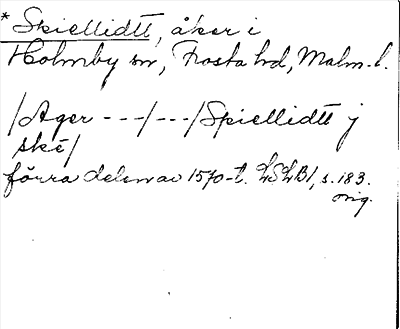 * Skiellidtt, åker i
Holmby sn, Frosta hd, Malm. l.
/Ager ---/---/Spiellidtt j
ske/
förra delen av 1570-t. LSLB1, s. 183.
orig.